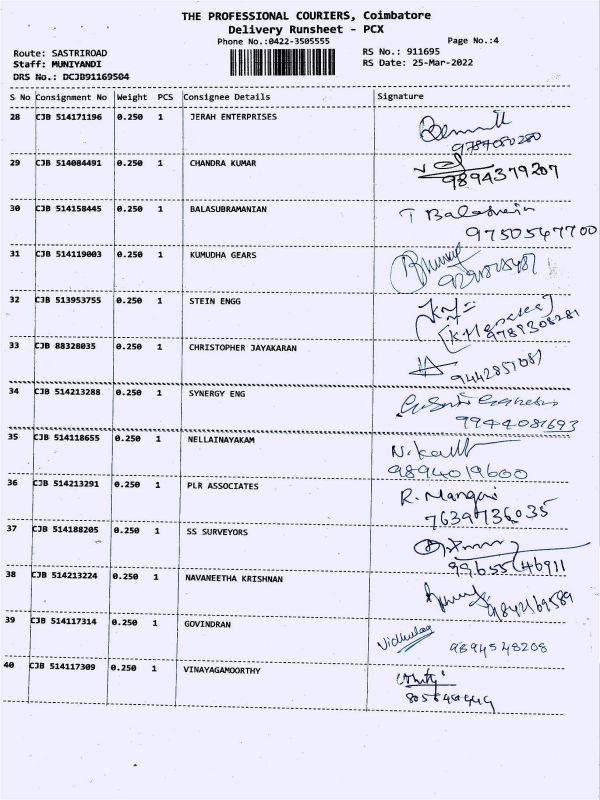 THE PROFESSIONAL COURIERS, Coimbatore
Delivery Runsheet - PCX
Phone No.:0422-3505555
Page No.:4
Route: SASTRIROAD
RS No.: 911695
Staff: MUNIYANDI
RS Date: 25-Mar-2022
DRS No.: DCJB91169504
S No Consignment No Weight PCS Consignee Details Signature
28 CJB 514171196 0.250 1 JERAH ENTERPRISES
9787080280
29 CJB 514084491 0.250 1 CHANDRA KUMAR
9894379207
30 CJB 514158445 0.250 1 BALASUBRAMANIAN
9750547700
31 CJB 514119003 0.250 1 KUMUDHA GEARS
32 CJB 513953755 0.250 1 STEIN ENGG
9789308281
33 CJB 88328035 0.250 1 CHRISTOPHER JAYAKARAN
9442857087
34 CJB 514213288 0.250 1 SYNERGY ENG
9944081693
35 CJB 514118655 0.250 1 NELLAINAYAKAM
9894019600
36 CJB 514213291 0.250 1 PLR ASSOCIATES R. Mangai
7639736035
37 CJB 514188205 0.250 1 SS SURVEYORS
9965546911
38 CJB 514213224 0.250 1 NAVANEETHA KRISHNAN
9842169589
39 CJB 514117314 0.250 1 GOVINDRAN
9894548208
40 CJB 514117309 0.250 1 VINAYAGAMOORTHY